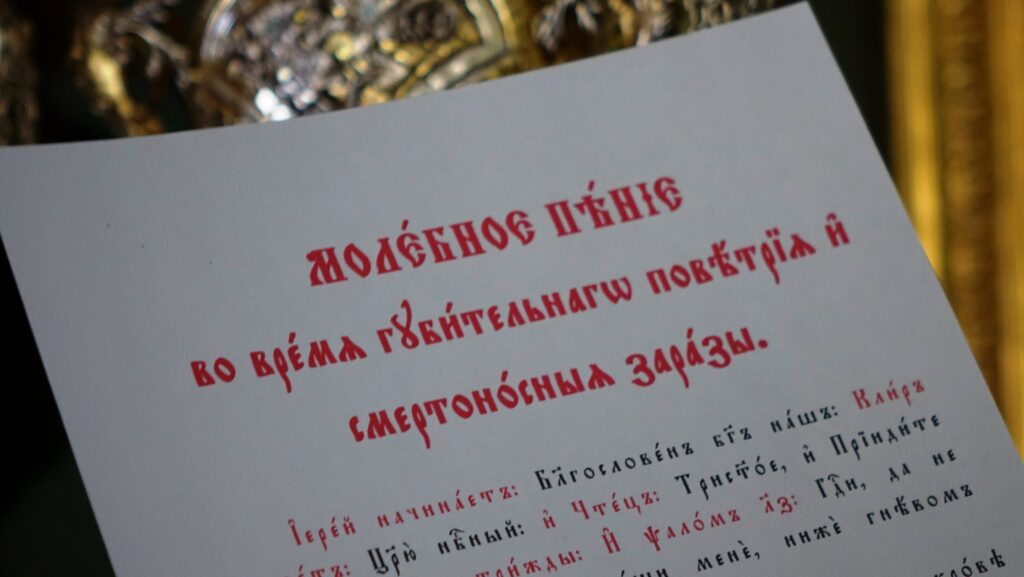 Моле́бное пѣ́нїе
во вре́мѧ гꙋби́тельнагѡ повѣ́трїѧ и҆
смертоно́сныѧ зара́зы.
І҆ере́й начина́етъ: Бл҃гослове́нъ бг҃ъ на́шъ: Кли́ръ
Цр҃ю̀ нб҇ный: и҆ Чте́цъ: Трист҃о́е, и҆ Прїиди́те
И҆ ѱало́мъ л҃з: Гдⷭ҇и, да не
менѐ, нижѐ гнѣ́вомъ